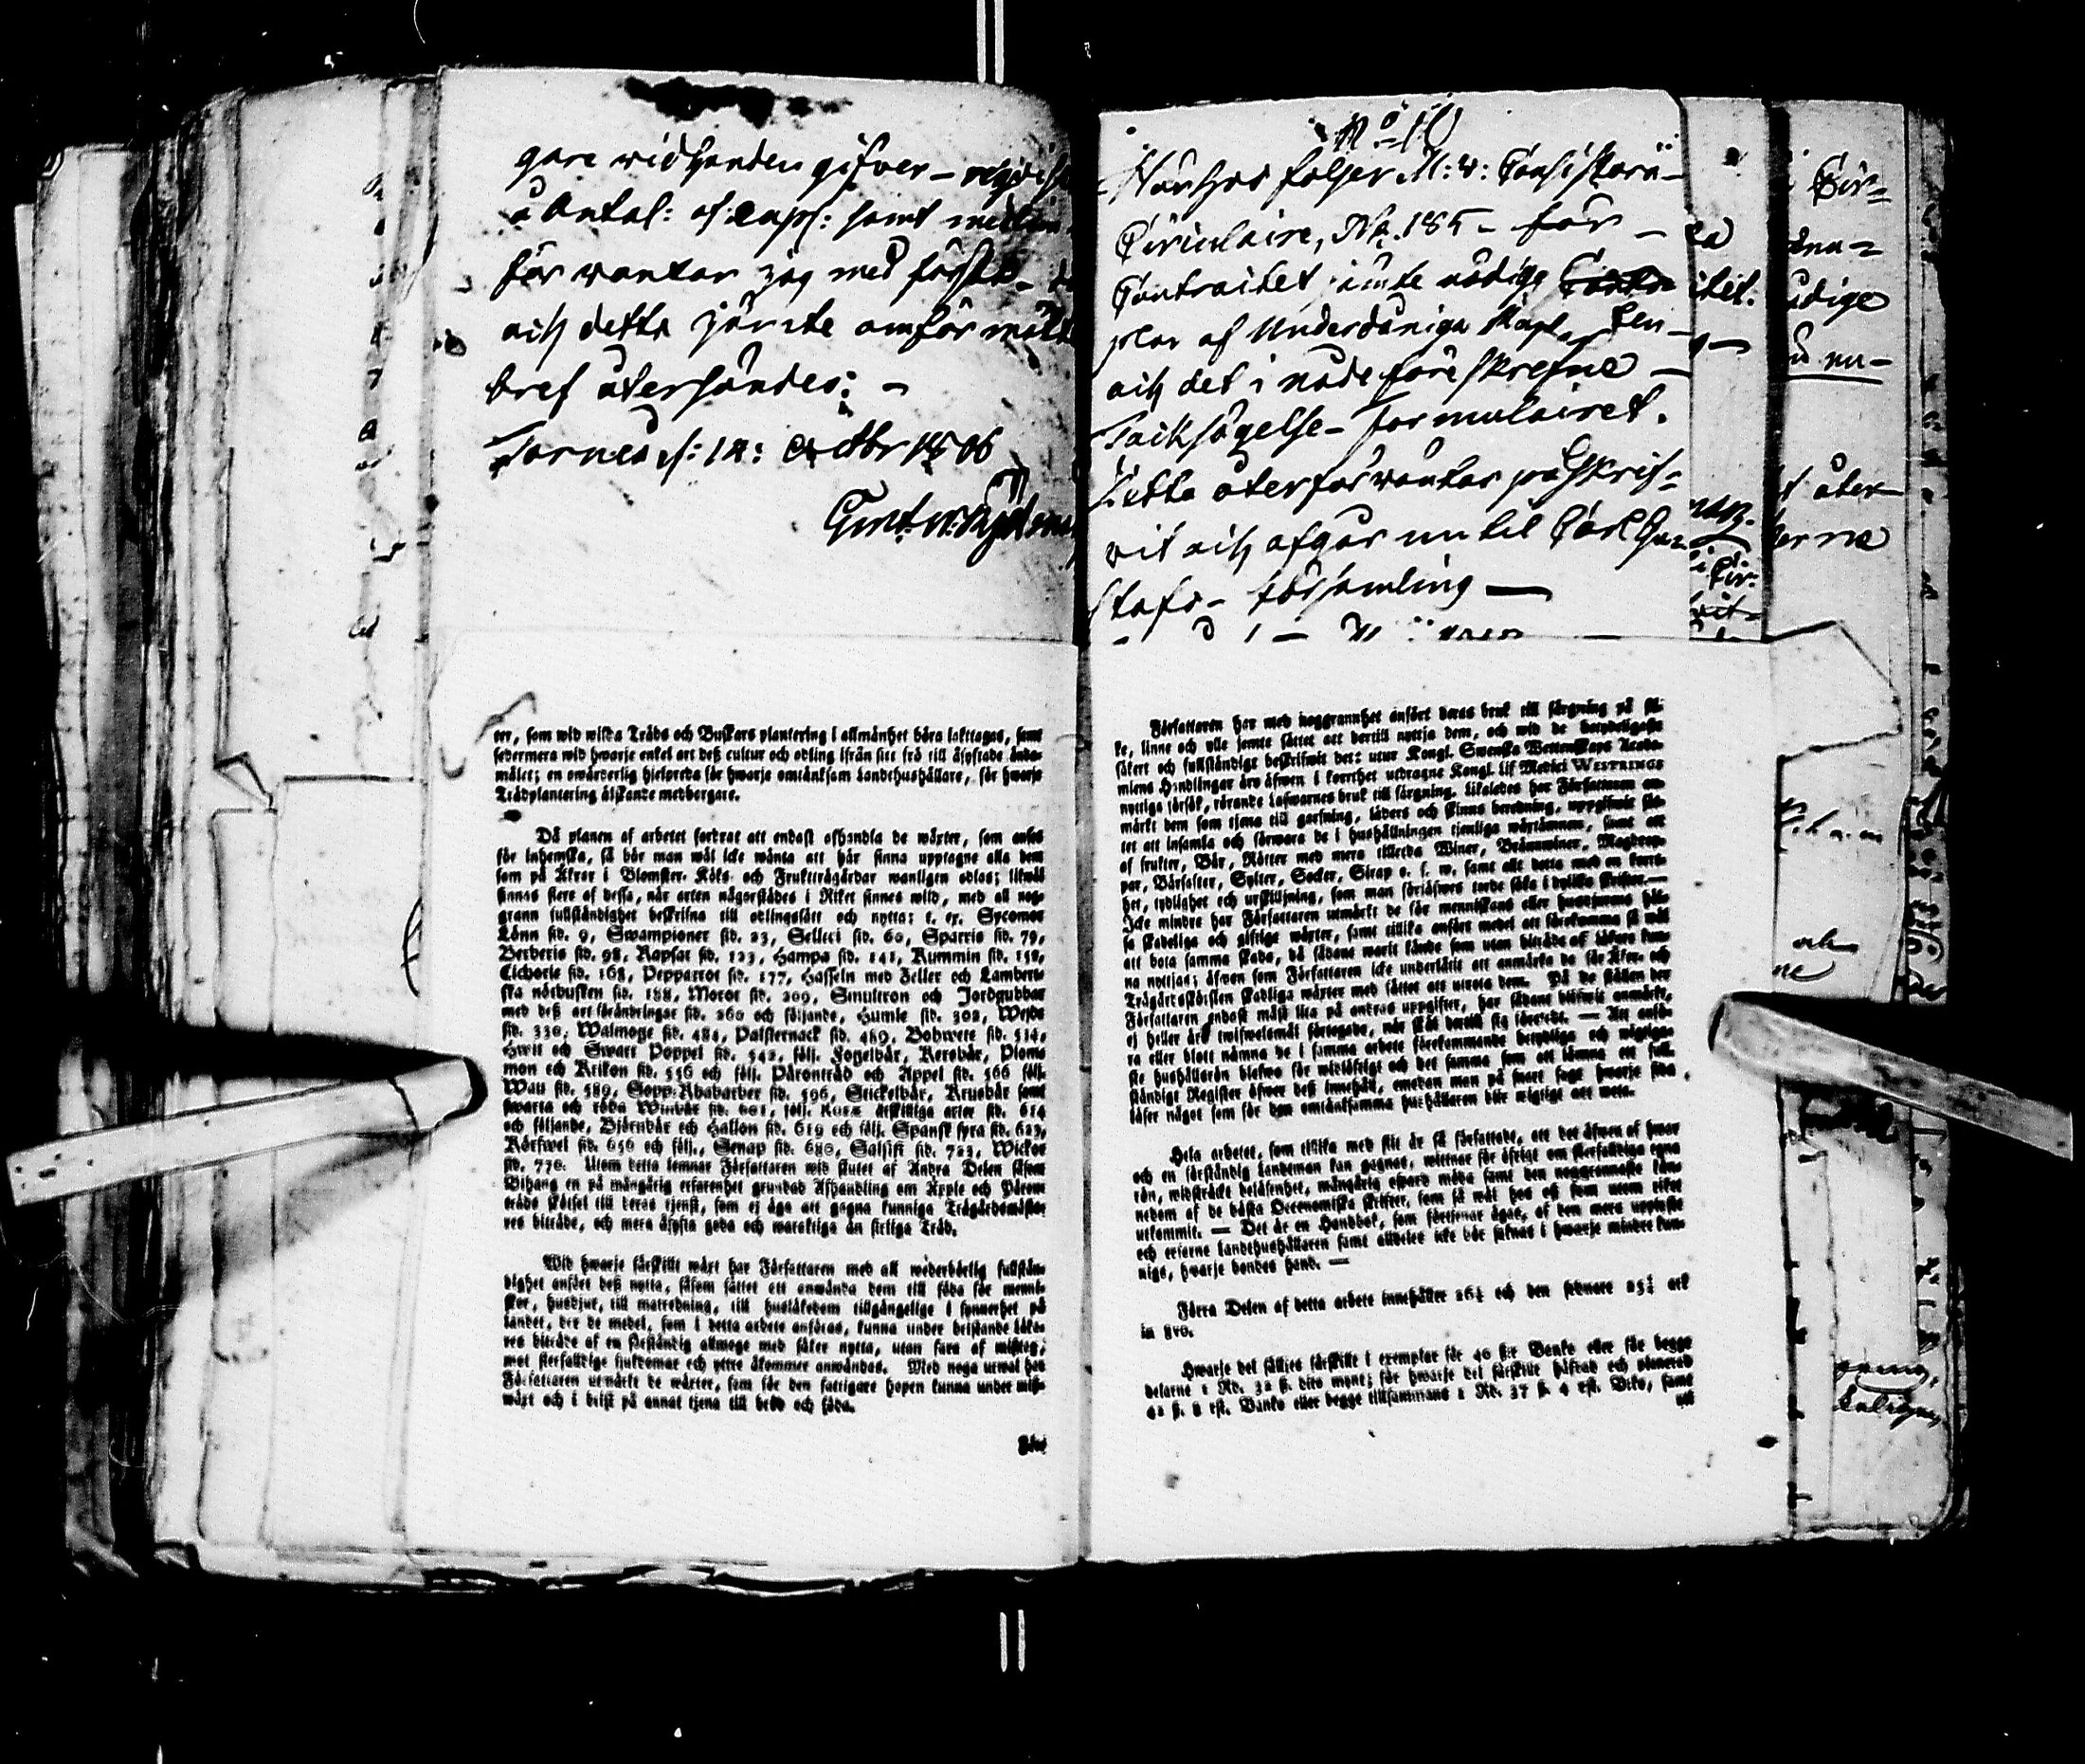 gare widhanden gifver
a Antal: af Capl: samt
för wäntar jag med första
och detta jämte omförmält
bref återsändes: –
Torneå d: 14: Octbr 1806
No 10
Härhos följer M: W: Consistorii
Circulaire, No. 185 – för –
Contractet jämte nödige
plar af Underdåniga
och det i nåde föreskrefne –
Tacksägelse-Formulairet.
Detta återförwäntas påskrif=
vit och afgår nu til Carl Gu=
stafs- församling —
rer, som wid wilda Träds och Buskars plantering i allmänhet böra iakttagas, samt
sedermera wid hwarje enkel art deß cultur och odling ifrån sitt frö till åsyftade ända-
målet; en owärderlig hielpreda för hwarje omtänksam Landthushållare, för hwarje
Trädplantering älskande medborgare.
Då planen af arbetet fordrat att endast afhandla de wäxter, som anses
för Inhemska, så bör man wäl icke wänta att här finna upptagne alla dem
som på Åkrar i Blomster- Köks- och Fruktträgårdar wanligen odlas; likwäl
finnas flere af dessa, när arten någorstädes i Riket finnes wild, med all nog-
grann fullständighet beskrifna till odlingssätt och nytta: t. ex. Sycomor
Lönn sid. 9, Swampioner sid. 23, Selleri sid. 60, Sparris sid. 79,
Berberis sid. 98, Rapsat sid. 123, Hampa sid. 141, Kummin sid. 158,
Cichorie sid. 168, Pepparrot sid. 177, Hasseln med Zeller och Lamberts-
ska nötbusken sid. 188, Morot sid. 209, Smultron och Jordgubbar
med deß artförändringar sid. 260 och följande, Humle sid. 302, Wejde
sid. 330, Walmoge sid. 484, Palsternack sid. 489, Bohwete sid. 514,
Hwit och Swart Poppel sid. 542, följ. Fogelbär, Kersbär, Plom-
mon och Krikon sid. 556 och följ. Päronträd och Äppel sid. 566 följ.
Wau sid. 589, Sopp: Rhabarber sid. 596, Stickelbär, Krusbär samt
swarta och röda Winbär sid. 601, följ. Rosæ åtskilliga arter sid. 614
och följande, Björnbär och Hallon sid. 619 och följ. Spansk syra sid. 623,
Körfwel sid. 656 och följ., Senap sid. 680, Salsifi sid. 723, Wicker
sid. 770. Utom detta lemnar Författaren wid slutet af Andra Delen såsom
Bihang en på mångårig erfarenhet grundad Afhandling om Äpple och Päron
träds skötsel till deras tjenst, som ej äga att gagna kunniga Trägårdsmästa-
res biträde, och mera åsyfta goda och waraktiga än sirliga Träd.
Wid hwarje särskillt wäxt har Författaren med all wederbörlig fullstän-
dighet anfört deß nytta, såsom sättet att anwända dem till föda för menni-
skor, husdjur, till matredning, till husläkedom tillgängelige i synnerhet på
landet, der de medel, som i detta arbete anföras, kunna under bristande Läka-
res biträde af en förståndig allmoge med säker nytta, utan fara af misstag,
mot flerfalldige sjukdomar och yttre åkommor anwändas. Med noga urwal har
Författaren utmärkt de wäxter, som för den fattigare hopen kunna under miß-
wäxt och i brist på annat tjena till bröd och föda.
Förfat
Författaren har med noggrannhet anfört deras bruk till färgning på sil-
ke, linne och ulle jemte sättet att dertill nyttja dem, och wid de betydeligaste
säkert och fullständigt beskrifwit det: utur Kongl. Swenska Wettenskaps Acade-
miens Handlingar äro äfwen i korrthet utdragne Kongl. Lif Medici WESTRINGS
nyttiga försök, rörande Lafwarnes bruk till färgning. Likaledes har Författaren an-
märkt dem som tjena till garfning, läders och skinns beredning, uppgifwit sät-
tet att insamla och förwara de i hushållningen tjenliga wäxtämnen, samt att
af frukter, Bär, Rötter med mera tillreda Winer, Bränwiner, Magdrop-
par, Bärsafter, Sylter, Socker, Sirap o. s. w. samt allt detta med en korrt-
het, tydlighet och urskiljning, som man förgäfwes torde söka i dylika skrifter. —
Icke mindre har Författaren utmärkt de för menniskans eller husdjurens häl-
sa skadeliga och giftiga wäxter, samt tillika anfört medel att förekomma så wäl
att bota samma skada, då sådane warit kände som utan biträde af läkare kun-
na nyttjas; äfwen som Författaren icke underlåtit att anmärka de för Åker- och
Trägårdsskötslen skadliga wäxter med sättet att utrota dem. På de ställen der
Författaren endast måst lita på andras uppgifter, har sådant blifwit anmärkt,
ej heller äro twifwelsmål förtegade, när skäl dertill sig företedt. — Att anfö-
ra eller blott nämna de i samma arbete förekommande betydliga och wigtiga-
ste hushållsrön blefwo för widlöftigt och det samma som att lämna ett full-
ständigt Register öfwer deß innehåll, emedan man på snart sagt hwarje sida
läser något som för den omtänksamma hushållaren blir wigtigt att weta.
Hela arbetet, som tillika med flit är så författade, att det äfwen af hwar
och en förståndig Landtman kan gagnas, wittnar för öfrigt om flerfalldiga egna
rön, widsträckt belåsenhet, mångårig ospard möda samt den noggrannaste kän-
nedom af de bästa Oeconomiska skrifter, som så wäl hos oß som utom riket
utkommit. — Det är en Handbok, som förtjenar ägas, af den mera upplyste
och erfarne Landthushållaren samt alldeles icke bör saknas i hwarje mindre kun-
nigs, hwarje bondes hand. —
Förra Delen af detta arbete innehåller 26½ och den sednare 25½ ark
in 8vo.
Hwarje del säljes särskilt i exemplar för 40 ß:r Banko eller för begge
delarne 1 Rd. 32 ß. dito mynt; för hwarje del särskilt häftad och planerad
42 ß. 8 rst. Banko eller begge tillsammans 1 Rd. 37 ß. 4 rst. Dito, samt